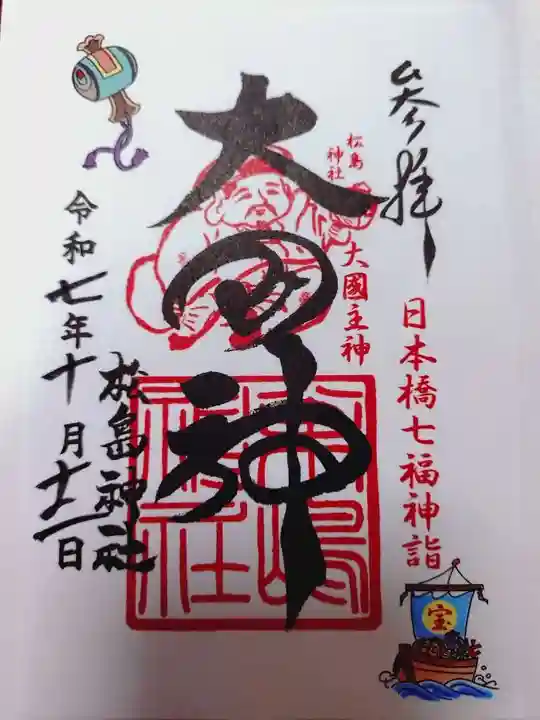 参拝
日本橋七福神詣
宝
松島
神社
大國主神
大国神
松島神社
松島神社
令和七年十月十二日